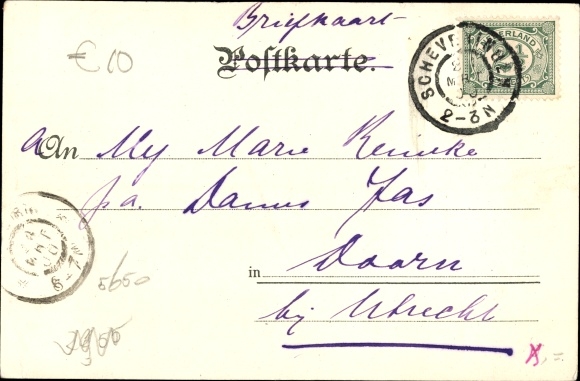 Briefkaart
Postkarte.
€10
SCHEVENINGEN
2-3N
NEDERLAND
An Mej Marie Remeke
p.a. Dames Jas
in Doorn
bij Utrecht
5650